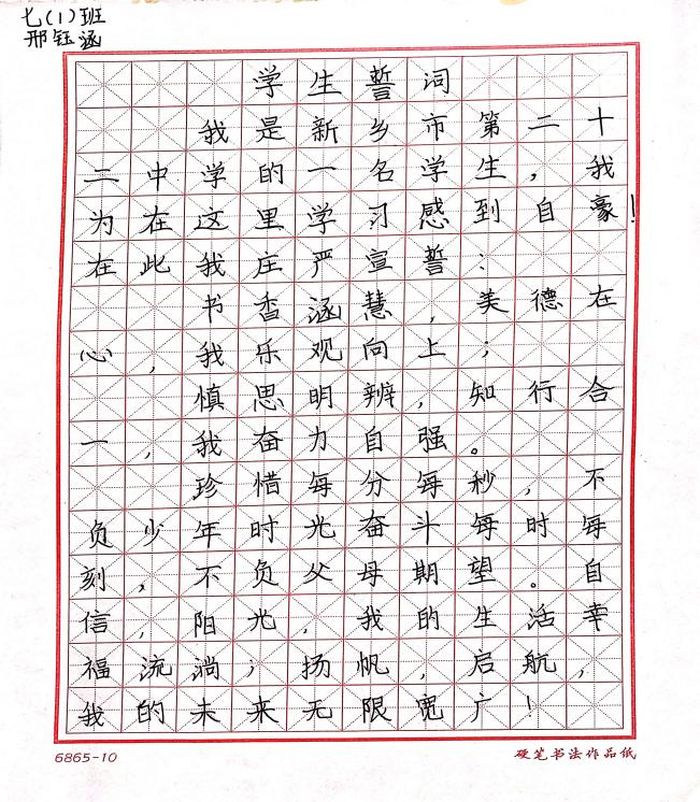 七(1)班
邢钰涵
学生誓词
我是新乡市第二十
二中学的一名学生，我
为在这里学习感到自豪！
在此我庄严宣誓：
书香涵慧，美德在
心，我乐观向上；
慎思明辨，知行合
一，我奋力自强。
珍惜每分每秒，不
负少年时光奋斗每时每
刻，不负父母期望。自
信，阳光，我的生活幸
福流淌；扬帆，启航，
我的未来无限宽广！
6865-10
硬笔书法作品纸